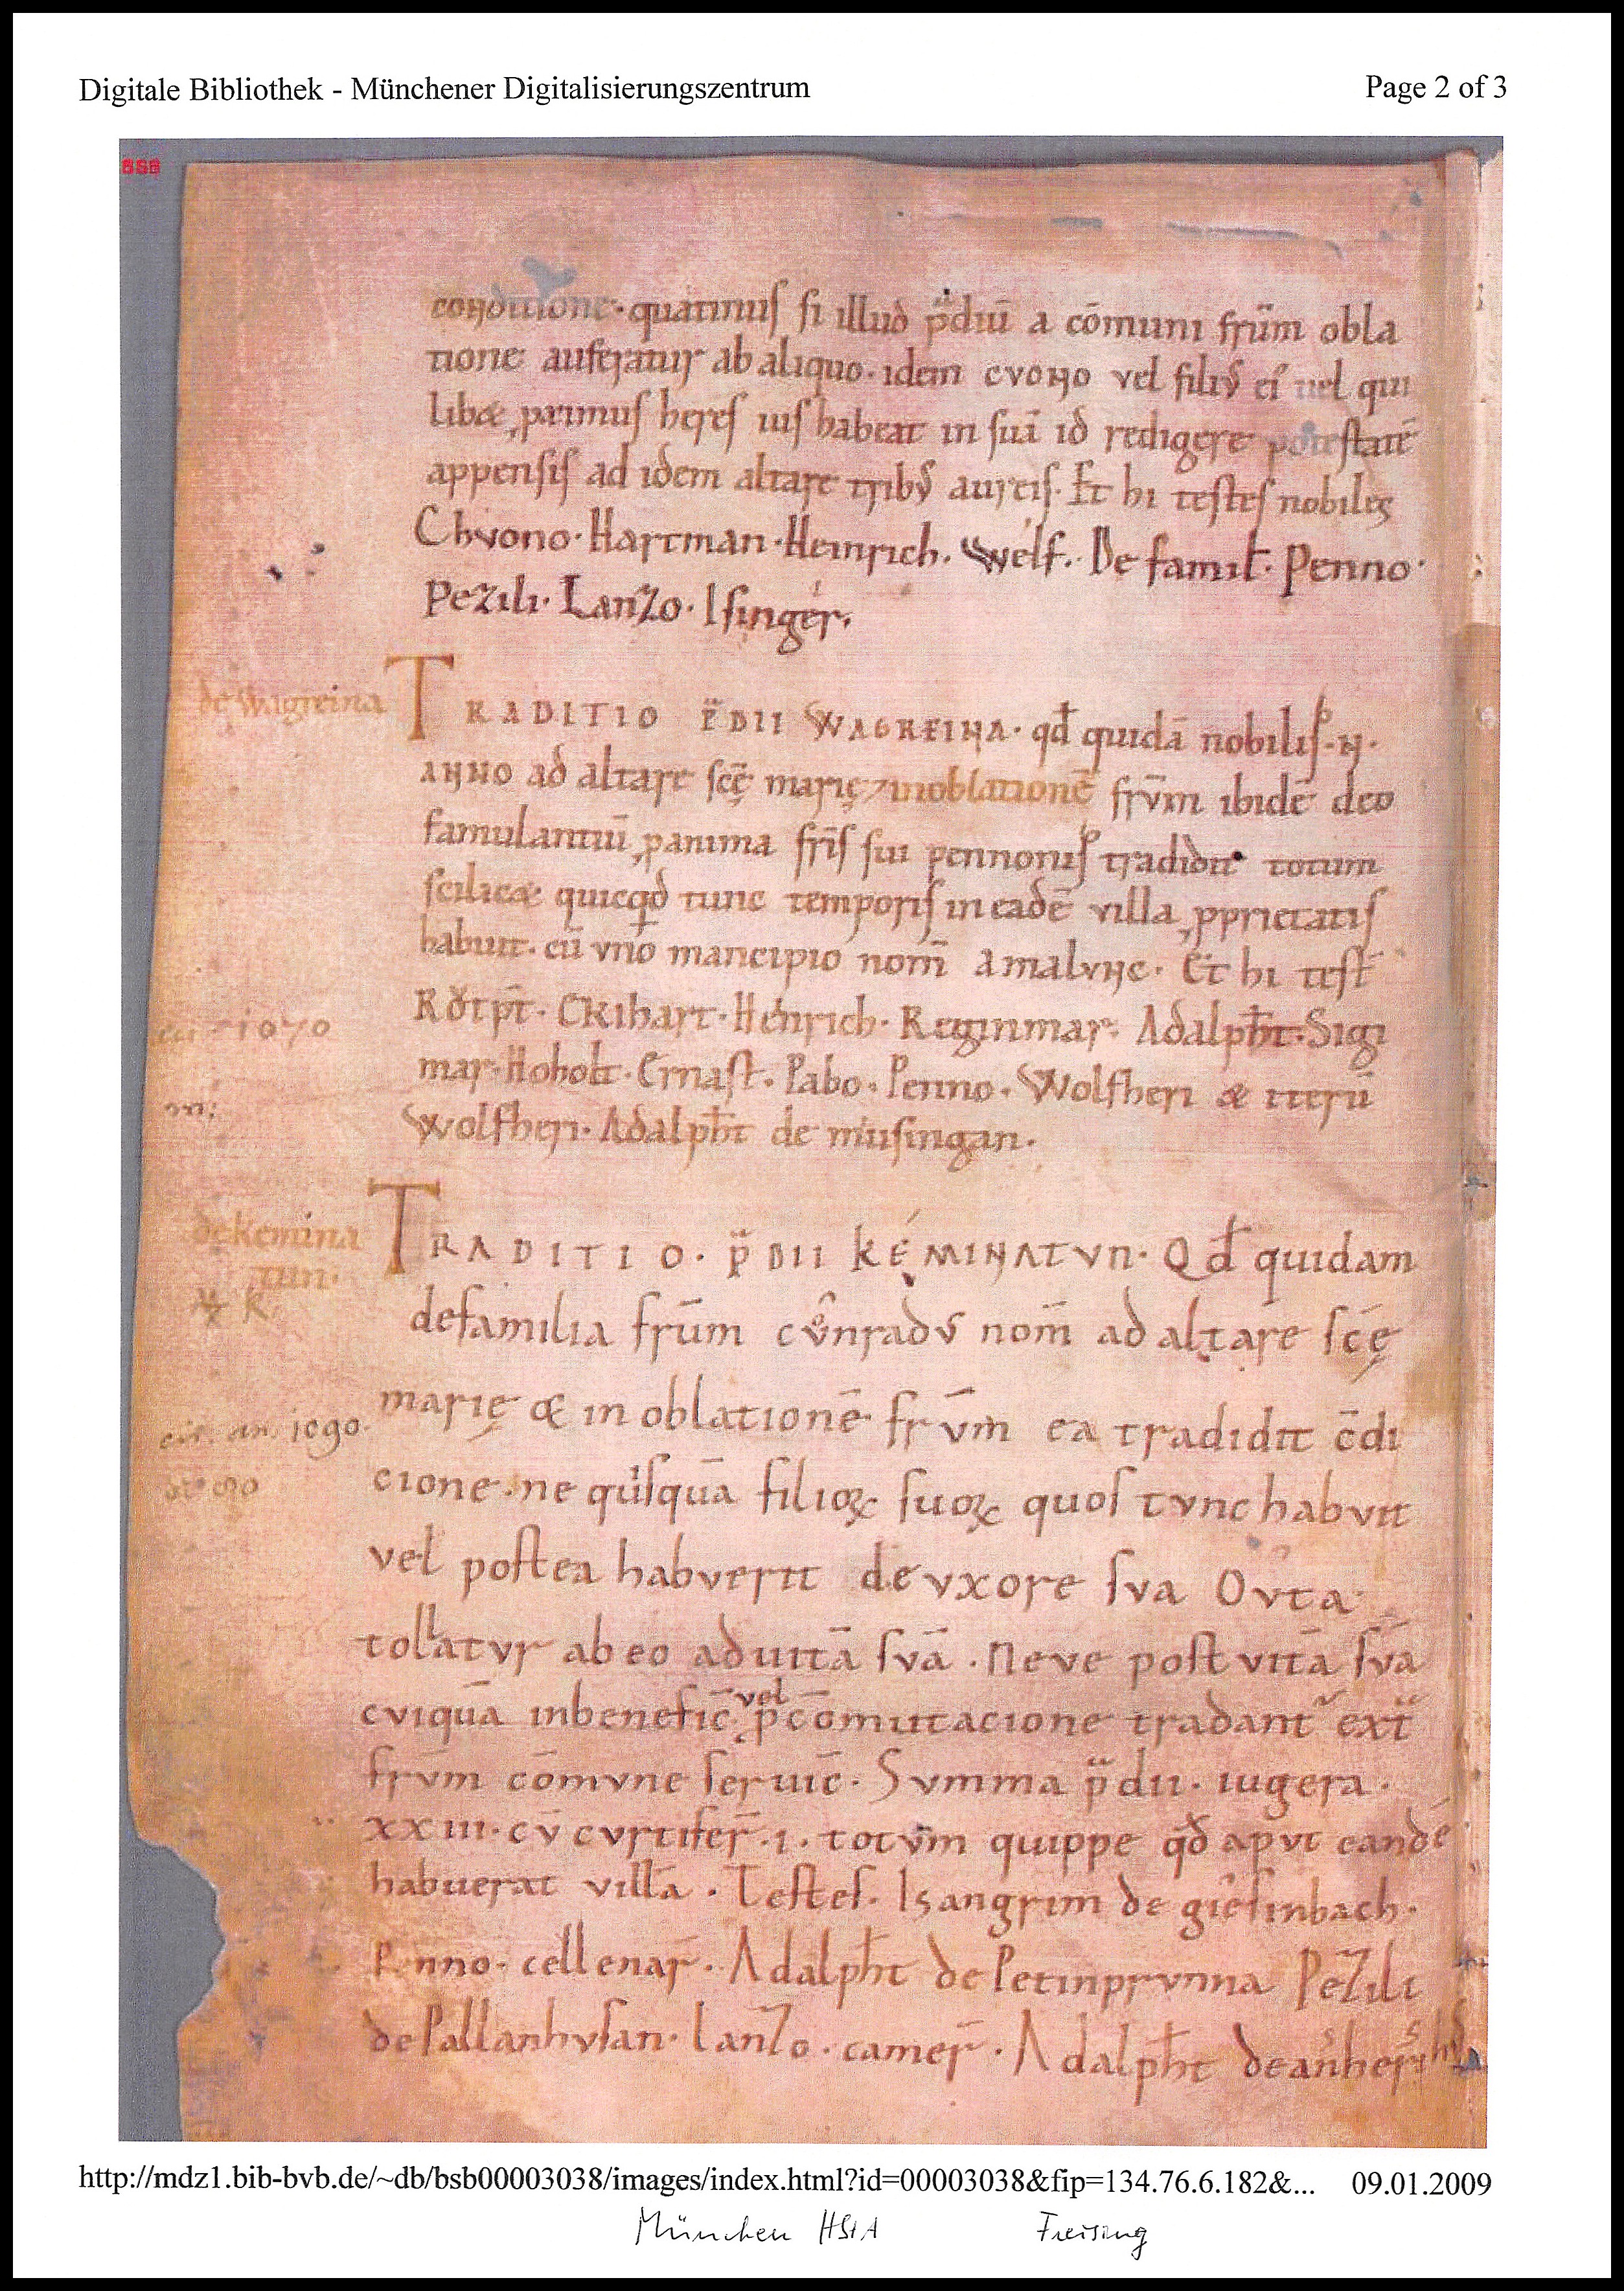 Digitale Bibliothek - Münchener Digitalisierungszentrum
Page 2 of 3
conditione · quatinus si illud p̄diū a cōmuni frūm obla
tione auferatur ab aliquo · idem cvono vel filiꝰ ei᷒ uel qui
libet, primus heres ius habeat in suā id redigere potestatē
appensis ad idem altare tribꝰ aureis. Et hi testes nobiles
Chvono · Hartman · Heinrich. Welf. De famił · Penno ·
Pezili · Lanzo · Isinger.
de Wagreina
TRADITIO p̄DII WAGREINA · qđ quidā nobilis · N ·
ANNO ad altare scę̄ marię 7 inoblationē frv̄m ibidē deo
famulantiū, p anima fr̄is sui pennonis tradidit totum
scilicet quicqd tunc temporis in eadē villa, pprietatis
habuit · cū vno mancipio nom̄ amalvnc · Et hi test̄
Rǒtpt̄ · Ekihart · Heinrich · Reginmar · Adalpħt · Sigi
1070
mar · Hobolt · Ernast · Pabo · Penno · Wolfheri & iterū
Wolfheri · Adalpħt de musingan.
de kemina
tun ·
TRADITIO · p̄DII kéMINATVN · Qđ quidam
defamilia frūm cv̊nradꝰ nom̄ ad altare scę̄
marię & in oblationē frv̄m ea tradidit c̄di
cir. an. 1090.
cione · ne quisquā filioꝝ suoꝝ quos tvnc habvit
vel postea habverit de vxore sva Ovta
tollatvr ab eo ad uitā svā . Neve post vitā svā
cviquā inbenefic̄ vel p cōmutacione tradant᷑ ext᷑
frv̄m cōmvne seruic̄ · Svmma p̄dii · iugera ·
xxiii · cv̄ cvrtifer̄ · i · totvm quippe qđ apvt eandē
habuerat villā . Testes · Isangrim de giesinbach ·
Penno · cellenar̄ · Adalpħt de Petinprvnna Pezili
de Pallanhvsan · lanzo · camer̄ · Adalpħt de
http://mdz1.bib-bvb.de/~db/bsb00003038/images/index.html?id=00003038&fip=134.76.6.182&...
09.01.2009
München HStA
Freising